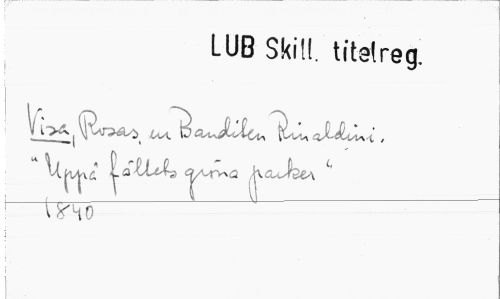 LUB Skill. titelreg.
Visa, Rosas, ur Banditen Rinaldini.
"Uppå fältets gröna parker"
1840